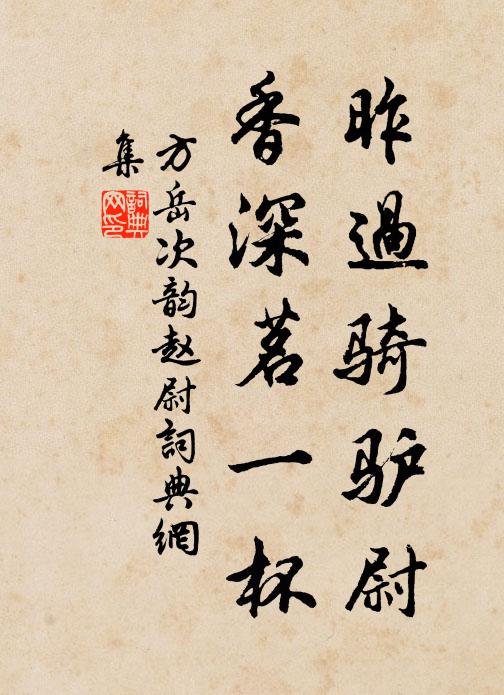 昨過骑驴尉
香深茗一杯
方岳次韵赵尉詞典網
集
詞典网印